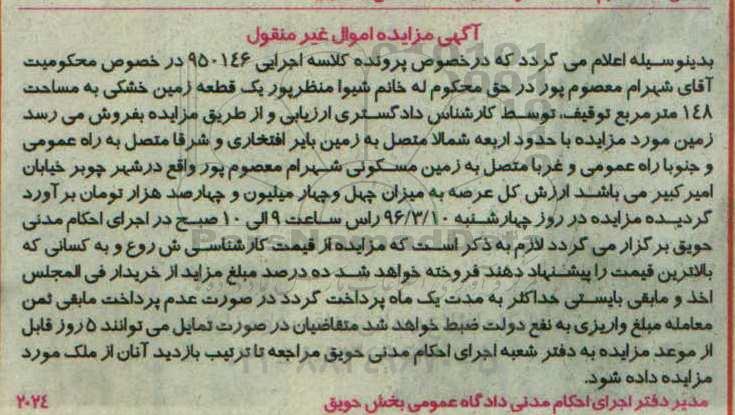 آگهی مزایده اموال غیر منقول
بدینوسیله اعلام می گردد که درخصوص پرونده کلاسه اجرایی ۹۵۰۱۴۶ در خصوص محکومیت
آقای شهرام معصوم پور در حق محکوم له خانم شیوا منظرپور یک قطعه زمین خشکی به مساحت
۱۴۸ مترمربع توقیف، توسط کارشناس دادگستری ارزیابی و از طریق مزایده بفروش می رسد
زمین مورد مزایده با حدود اربعه شمالا متصل به زمین بایر افتخاری و شرقا متصل به راه عمومی
و جنوبا راه عمومی و غربا متصل به زمین مسکونی شهرام معصوم پور واقع درشهر چوبر خیابان
امیرکبیر می باشد ارزش کل عرصه به میزان چهل وچهار میلیون و چهارصد هزار تومان برآورد
گردیده مزایده در روز چهارشنبه ۹۶/۳/۱۰ راس ساعت ۹ الی ۱۰ صبح در اجرای احکام مدنی
حویق برگزار می گردد لازم به ذکر است که مزایده از قیمت کارشناسی ش روع و به کسانی که
بالاترین قیمت را پیشنهاد دهند فروخته خواهد شد ده درصد مبلغ مزاید از خریدار فی المجلس
اخذ و مابقی بایستی حداکثر به مدت یک ماه پرداخت گردد در صورت عدم پرداخت مابقی ثمن
معامله مبلغ واریزی به نفع دولت ضبط خواهد شد متقاضیان در صورت تمایل می توانند ۵ روز قابل
از موعد مزایده به دفتر شعبه اجرای احکام مدنی حویق مراجعه تا ترتیب بازدید آنان از ملک مورد
مزایده داده شود.
مدیر دفتر اجرای احکام مدنی دادگاه عمومی بخش حویق ۲۰۲٤